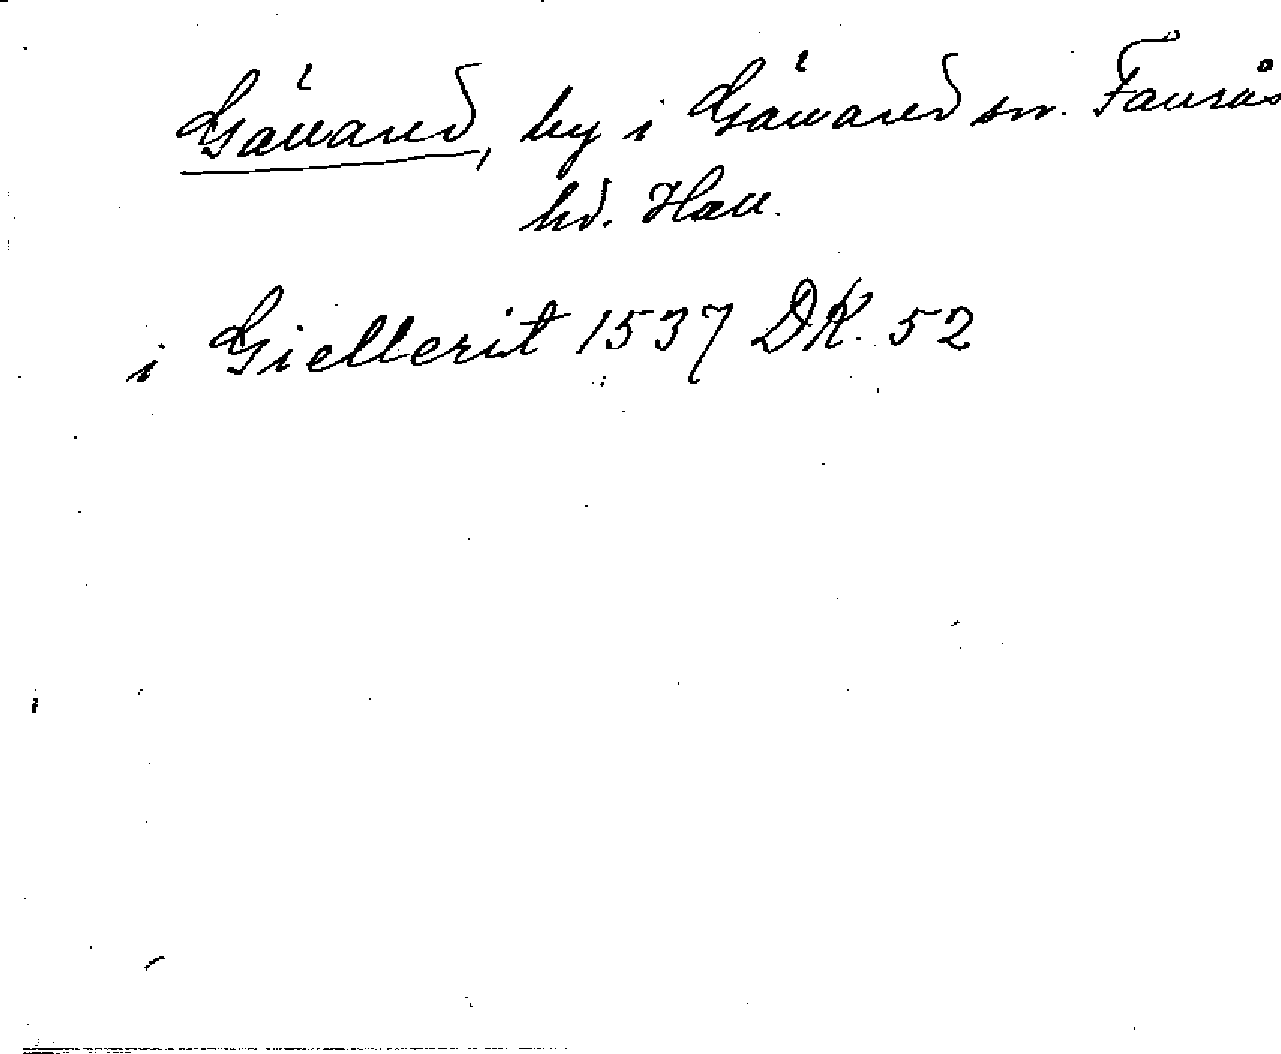 Gällared, by i Gällared sn. Faurås
hd. Hall.
i Giellerit 1537 DK. 52